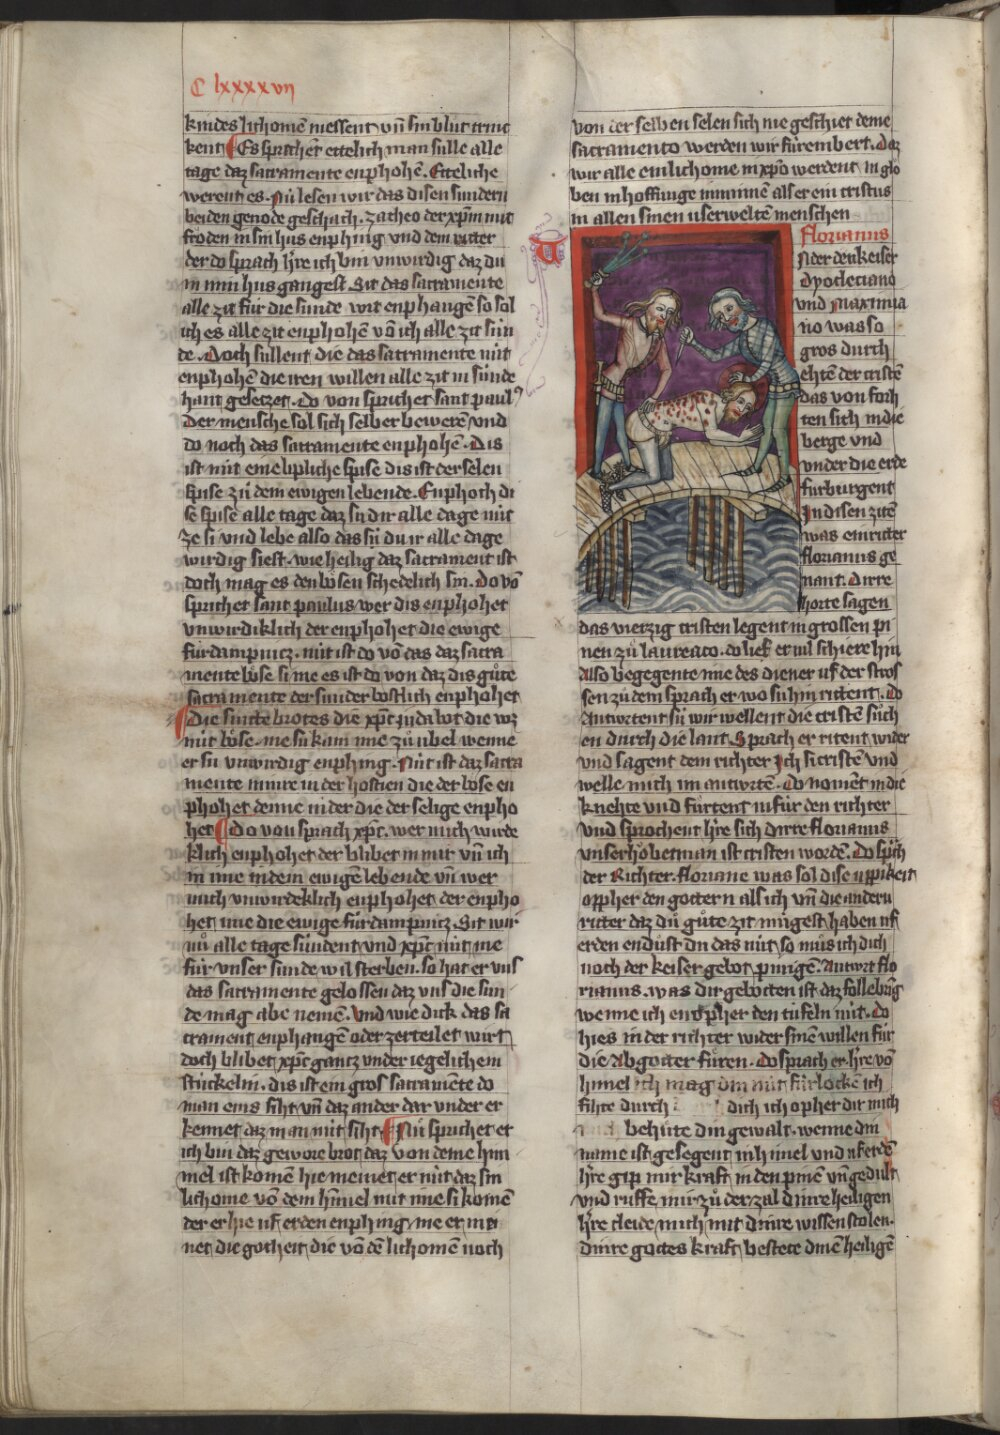 C lxxxxvij
kindes lichomē niessent vn̄ sin blůt trinc
kent Es sprichēt ettelich man sülle alle
tage daz sacramente enphohē. Etteliche
werent es. Nu lesen wir das disen sundern
beiden genode geschach. zacheo der xp̄m mit
froden in sin hus enphing vnd dem ritter
der do sprach h're ich bin vnwirdig daz du
in min hus gangest Sit das sacramente
alle zit für die sunde wirt enphangē so sol
ich es alle zit enphohē vō ich alle zit sün
de. Doch sullent die das sacramente nüt
enphohē die iren willen alle zit in sünde
hant gesetzet. do von sprichet sant paul9
der mensche sol sich selber bewerē vnd
do noch das sacramente enphohē. Dis
ist nüt eine liplich spise dis ist der selen
spise zů dem ewigen lebende. Enphoch di
se spise alle tage daz sü dir alle dage nüt
ze si vnd lebe also das sü du ir alle dage
wirdig siest. wie heilig daz sacrament ist
doch mag es den bösen schedelich sin. Do vō
sprichet sant paulus wer dis enphohet
vnwirdiklich der enphohet die ewige
fürdampnitz. nüt ist do vō das daz sacra
mente böse si me es ist do von daz dis gůte
sacramente der sunder böslich enphohet
Die sincte brotes die xp̄c iuda bot die wz
nüt böse. me sü kam ime zů übel wenne
er sü vnwirdig enphing. Nüt ist daz sacra
mente minre in der hostien die der böse en
phohet denne in der die der selige enpho
het Do von sprach xp̄c. wer mich wirde
klich enphohet der blibet in mir vn̄ ich
in ime in dem ewigē lebende vn̄ wer
mich vnwirdeklich enphohet der enpho
het ime die ewige fürdampnitz. Sit wir
nů alle tage sündent vnd xp̄c nüt me
für vnser sunde wil sterben. so hat er vns
das sacramente gelossen daz vns die sün
de mag abe nemē. Vnd wie dick das sa
crament enphangē oder zerteilet wirt
doch blibet xp̄c gantz vnder iegelichem
stückelin. dis ist ein gros sacramēte do
man eins siht vn̄ daz ander dar vnder er
kennet daz man nüt siht Nu sprichet er
ich bin daz gewore brot daz von deme him
mel ist komē hie meinet er nüt daz sin
lichome vō dem hīmel nüt me si komē
der er hie uf erden enphing. me er mei
net die gotheit die vō dē lichomen noch
von der selben selen sich nie geschiet deme
sacramento werden wir fürembert. Daz
wir alle ein lichome in xp̄o werdent in glo
ben in hoffnūge in minnē als er ein cristus
in allen sinen userweltē menschen
Florianus
Vnder den keiser
Dyocleciano
vnd Maximia
no was so
gros durch
ehtē der cristē
das von forh
ten sich in die
berge vnd
vnder die erde
fürburgent
In disen zitē
was ein ritter
florianus ge
nant. Dirre
horte sagen
das vierzig cristen legent in grossen pi
nen zů laureato. do lief er vil schiere hin
Also begegente ime des diener uf der stros
sen zů dem sprach er wo sü hin rittent. Do
antwrtent sü wir wellent die cristē sůch
en durch die lant. Sprach er ritent wider
vnd sagent dem richter Ich si cristē vnd
welle mich im antwrtē. Do nomēt in die
knehte vnd fürtent in für den richter
vnd sprochent h're sich dirre florianus
vnser hōbetman ist cristen wordē. Do sp̄ch
der Richter. floriane was sol dise üppikeit
oppher den gottern als ich vn̄ die andern
ritter daz du gůte zit mügest haben uf
erden endůst du das nüt so můs ich dich
noch der keiser gebot pinigē. Antwrt flo
rianus. was dir gebotten ist daz follebring
wenne ich enopher den tüfeln nüt. Do
hies in der richter wider sinē willen für
die Abgötter füren. Do sprach er. h're vō
himel ich mag din nüt fürlöcke ich
fihte durch dich ich opher dir mich
behüte din gewalt. wenne din
name ist gesegent in himel vnd uf erdē
h're gip mir kraft in den pinē vn̄ gedult
vnd rüffe mir zů der zal dinre heiligen
h're cleide mich mit dinre wissen stolen.
dinre gottes kraft bestete dinē heiligē